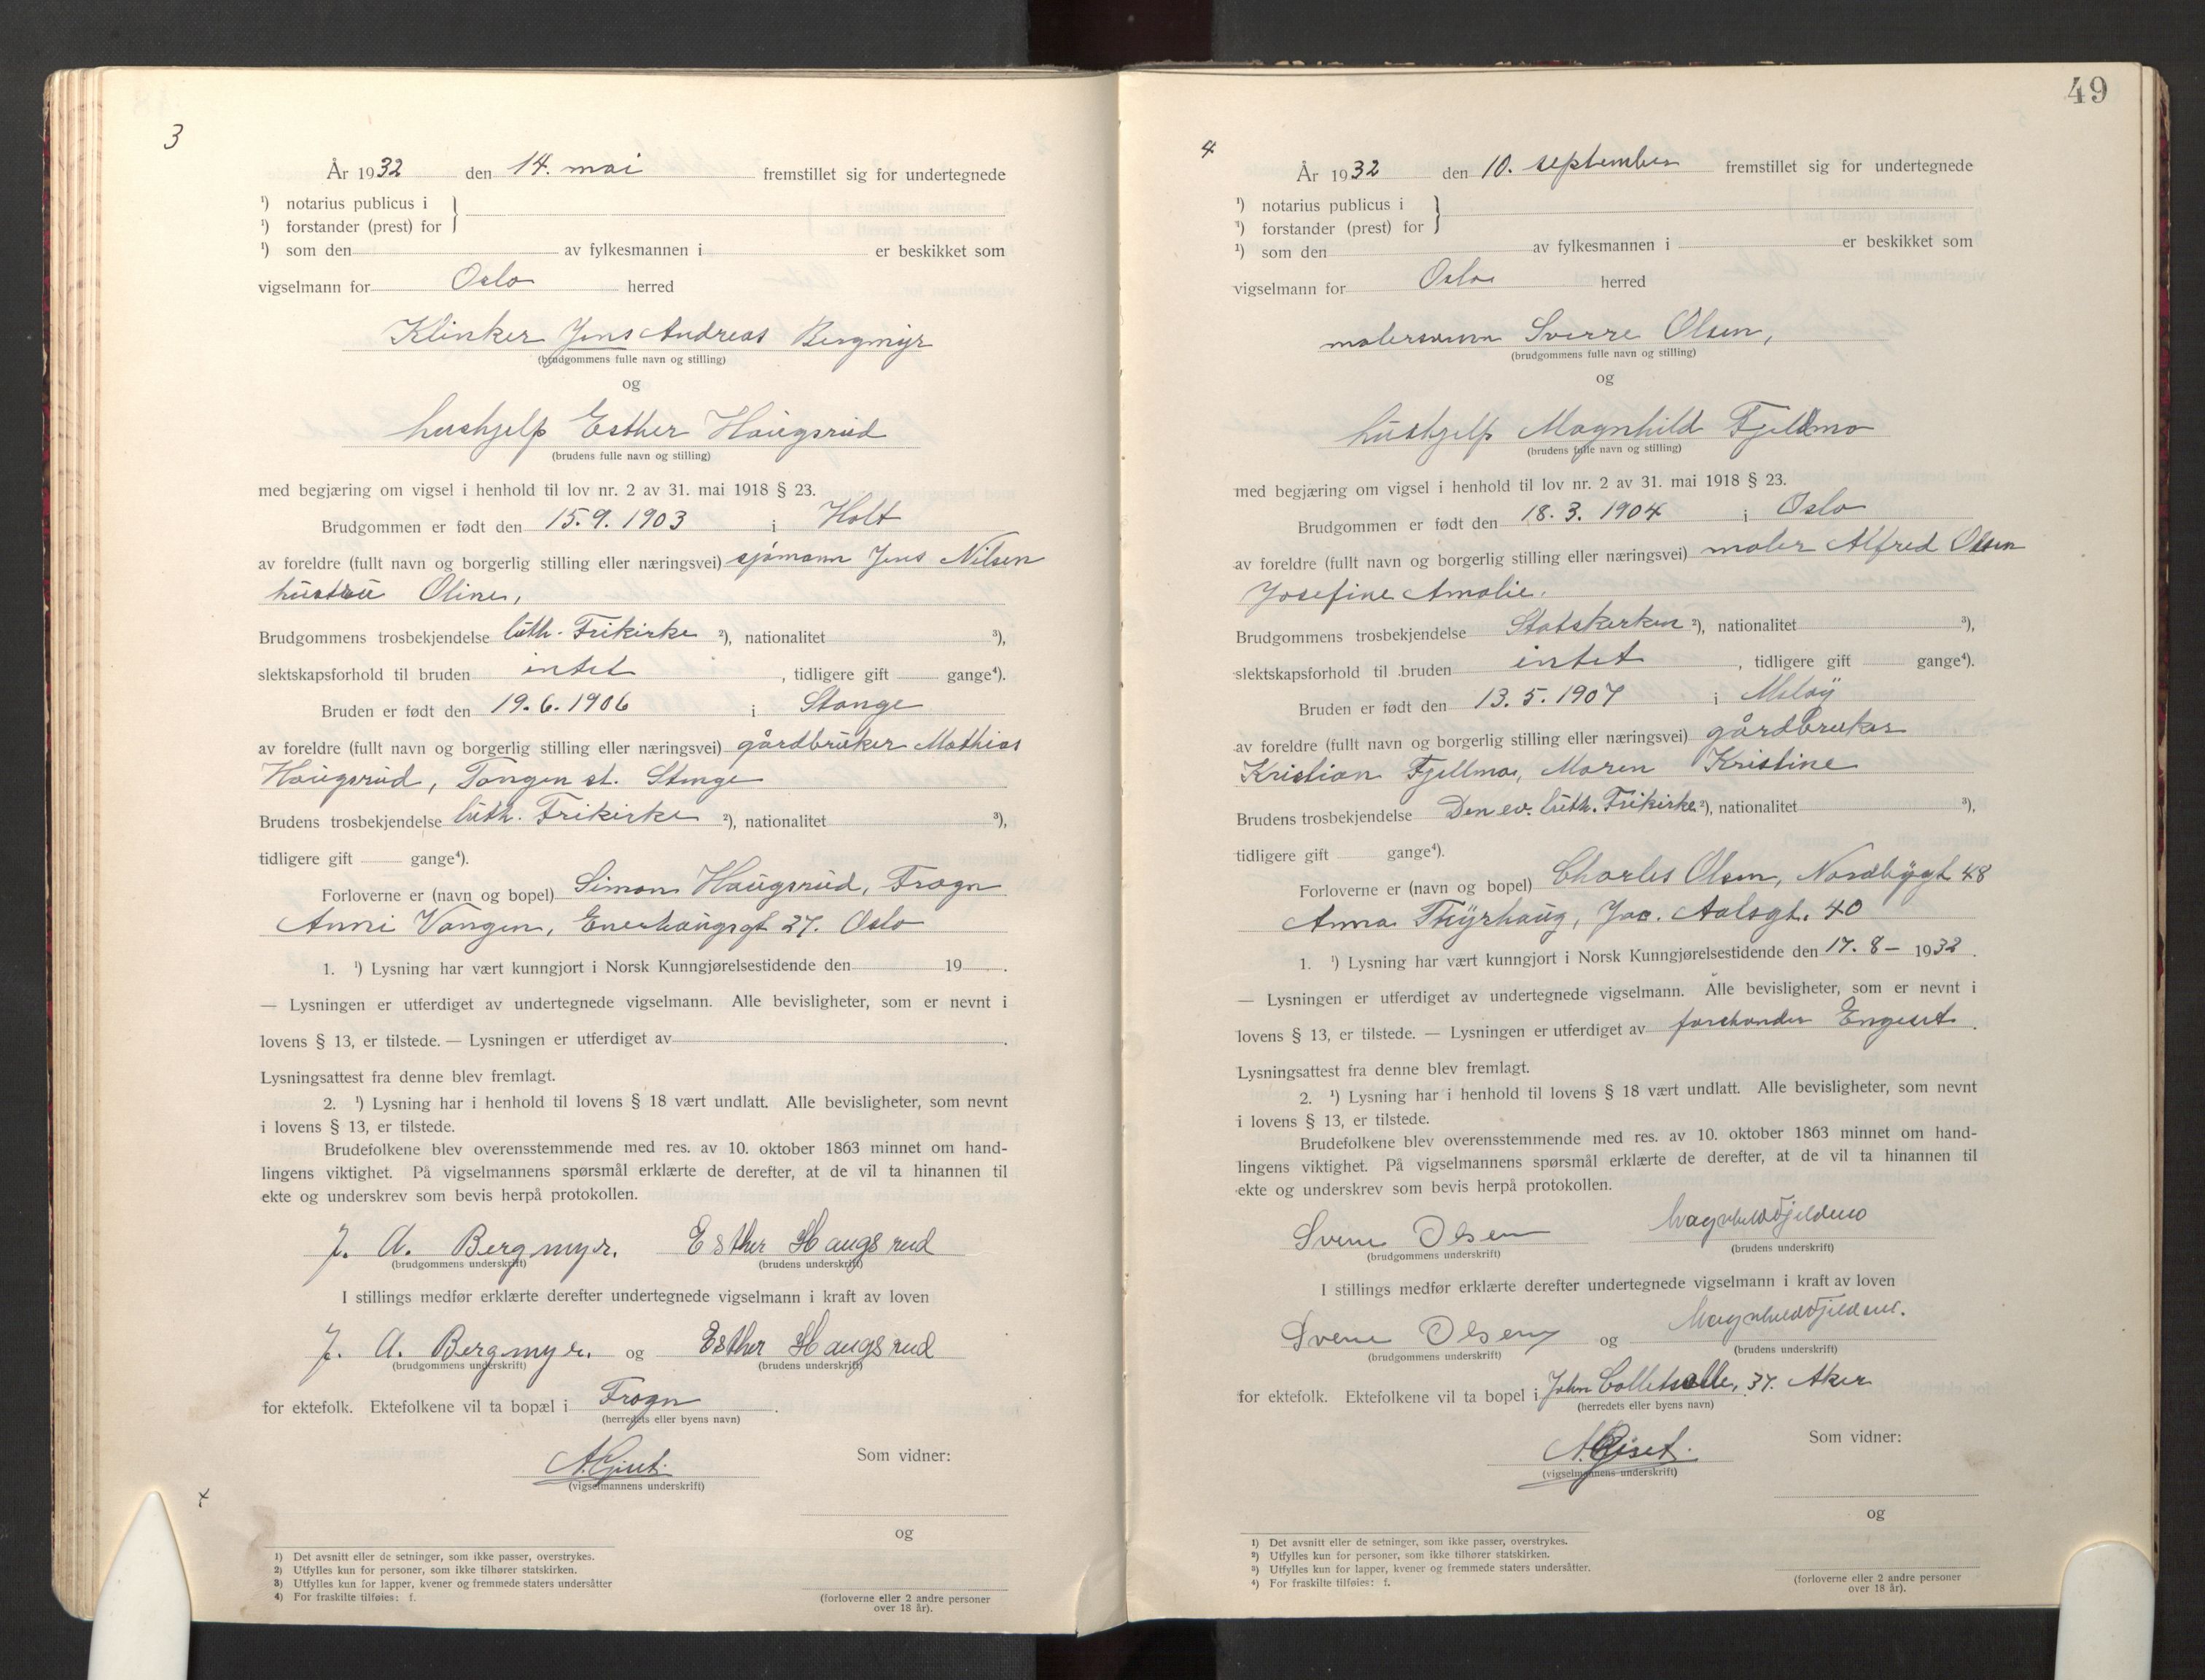 3
År 1932 den 14. mai fremstillet sig for undertegnede
¹) notarius publicus i
¹) forstander (prest) for
¹) som den av fylkesmannen i er beskikket som
vigselmann for Oslo herred
Klinker Jens Andreas Bergmyr
(brudgommens fulle navn og stilling)
og
hushjelp Esther Haugsrud
(brudens fulle navn og stilling)
med begjæring om vigsel i henhold til lov nr. 2 av 31. mai 1918 § 23.
Brudgommen er født den 15.9.1903 i Holt
av foreldre (fullt navn og borgerlig stilling eller næringsvei) sjømann Jens Nilsen
hustru Oline,
Brudgommens trosbekjendelse luth. Frikirke ²), nationalitet ³),
slektskapsforhold til bruden intet , tidligere gift gange⁴).
Bruden er født den 19.6.1906 i Stange
av foreldre (fullt navn og borgerlig stilling eller næringsvei) gårdbruker Mathias
Haugsrud, Tangen st. Stange
Brudens trosbekjendelse luth. Frikirke ²), nationalitet ³),
tidligere gift gange⁴).
Forloverne er (navn og bopel) Simon Haugsrud, Frogn
Anni Vangen, Enerhaugsgt 27. Oslo
1. ¹) Lysning har vært kunngjort i Norsk Kunngjørelsestidende den 19 .
— Lysningen er utferdiget av undertegnede vigselmann. Alle bevisligheter, som er nevnt i
lovens § 13, er tilstede. — Lysningen er utferdiget av .
Lysningsattest fra denne blev fremlagt.
2. ¹) Lysning har i henhold til lovens § 18 vært undlatt. Alle bevisligheter, som nevnt
i lovens § 13, er tilstede.
Brudefolkene blev overensstemmende med res. av 10. oktober 1863 minnet om hand-
lingens viktighet. På vigselmannens spørsmål erklærte de derefter, at de vil ta hinannen til
ekte og underskrev som bevis herpå protokollen.
J. A. Bergmyr. Esther Haugsrud
(brudgommens underskrift) (brudens underskrift)
I stillings medfør erklærte derefter undertegnede vigselmann i kraft av loven
J. A. Bergmyr. og Esther Haugsrud
(brudgommens underskrift) (brudens underskrift)
for ektefolk. Ektefolkene vil ta bopæl i Frogn .
(herredets eller byens navn)
A. Gjset. Som vidner:
(vigselmannens underskrift)
og
1) Det avsnitt eller de setninger, som ikke passer, overstrykes.
2) Utfylles kun for personer, som ikke tilhører statskirken.
3) Utfylles kun for lapper, kvener og fremmede staters undersåtter
4) For fraskilte tilføies: f.
(forloverne eller 2 andre personer
over 18 år).
49
4
År 1932 den 10. september fremstillet sig for undertegnede
¹) notarius publicus i
¹) forstander (prest) for
¹) som den av fylkesmannen i er beskikket som
vigselmann for Oslo herred
malersvenn Sverre Olsen,
(brudgommens fulle navn og stilling)
og
hushjelp Magnhild Fjeldmo
(brudens fulle navn og stilling)
med begjæring om vigsel i henhold til lov nr. 2 av 31. mai 1918 § 23.
Brudgommen er født den 18.3.1904 i Oslo
av foreldre (fullt navn og borgerlig stilling eller næringsvei) maler Alfred Olsen
Josefine Amalie.
Brudgommens trosbekjendelse Statskirken ²), nationalitet ³),
slektskapsforhold til bruden intet , tidligere gift gange⁴).
Bruden er født den 13.5.1907 i Meløy
av foreldre (fullt navn og borgerlig stilling eller næringsvei) gårdbruker
Kristian Fjellmo, Maren Kristine
Brudens trosbekjendelse Den ev. luth. Frikirke ²), nationalitet ³),
tidligere gift gange⁴).
Forloverne er (navn og bopel) Charles Olsen, Nordbygt 48
Anna Thyrhaug, Jac. Aalsgt. 40
1. ¹) Lysning har vært kunngjort i Norsk Kunngjørelsestidende den 17. 8 – 1932.
— Lysningen er utferdiget av undertegnede vigselmann. Alle bevisligheter, som er nevnt i
lovens § 13, er tilstede. — Lysningen er utferdiget av forstander .
Lysningsattest fra denne blev fremlagt.
2. ¹) Lysning har i henhold til lovens § 18 vært undlatt. Alle bevisligheter, som nevnt
i lovens § 13, er tilstede.
Brudefolkene blev overensstemmende med res. av 10. oktober 1863 minnet om hand-
lingens viktighet. På vigselmannens spørsmål erklærte de derefter, at de vil ta hinannen til
ekte og underskrev som bevis herpå protokollen.
Sverre Olsen Magnhild Fjeldmo
(brudgommens underskrift) (brudens underskrift)
I stillings medfør erklærte derefter undertegnede vigselmann i kraft av loven
Sverre Olsen og Magnhild Fjeldmo.
(brudgommens underskrift) (brudens underskrift)
for ektefolk. Ektefolkene vil ta bopel i John Colletsalle, 37. Aker
(herredets eller byens navn)
A. Gjset. Som vidner:
(vigselmannens underskrift)
og
1) Det avsnitt eller de setninger, som ikke passer, overstrykes.
2) Utfylles kun for personer, som ikke tilhører statskirken.
3) Utfylles kun for lapper, kvener og fremmede staters undersåtter.
4) For fraskilte tilføies: f.
(forloverne eller 2 andre personer
over 18 år).